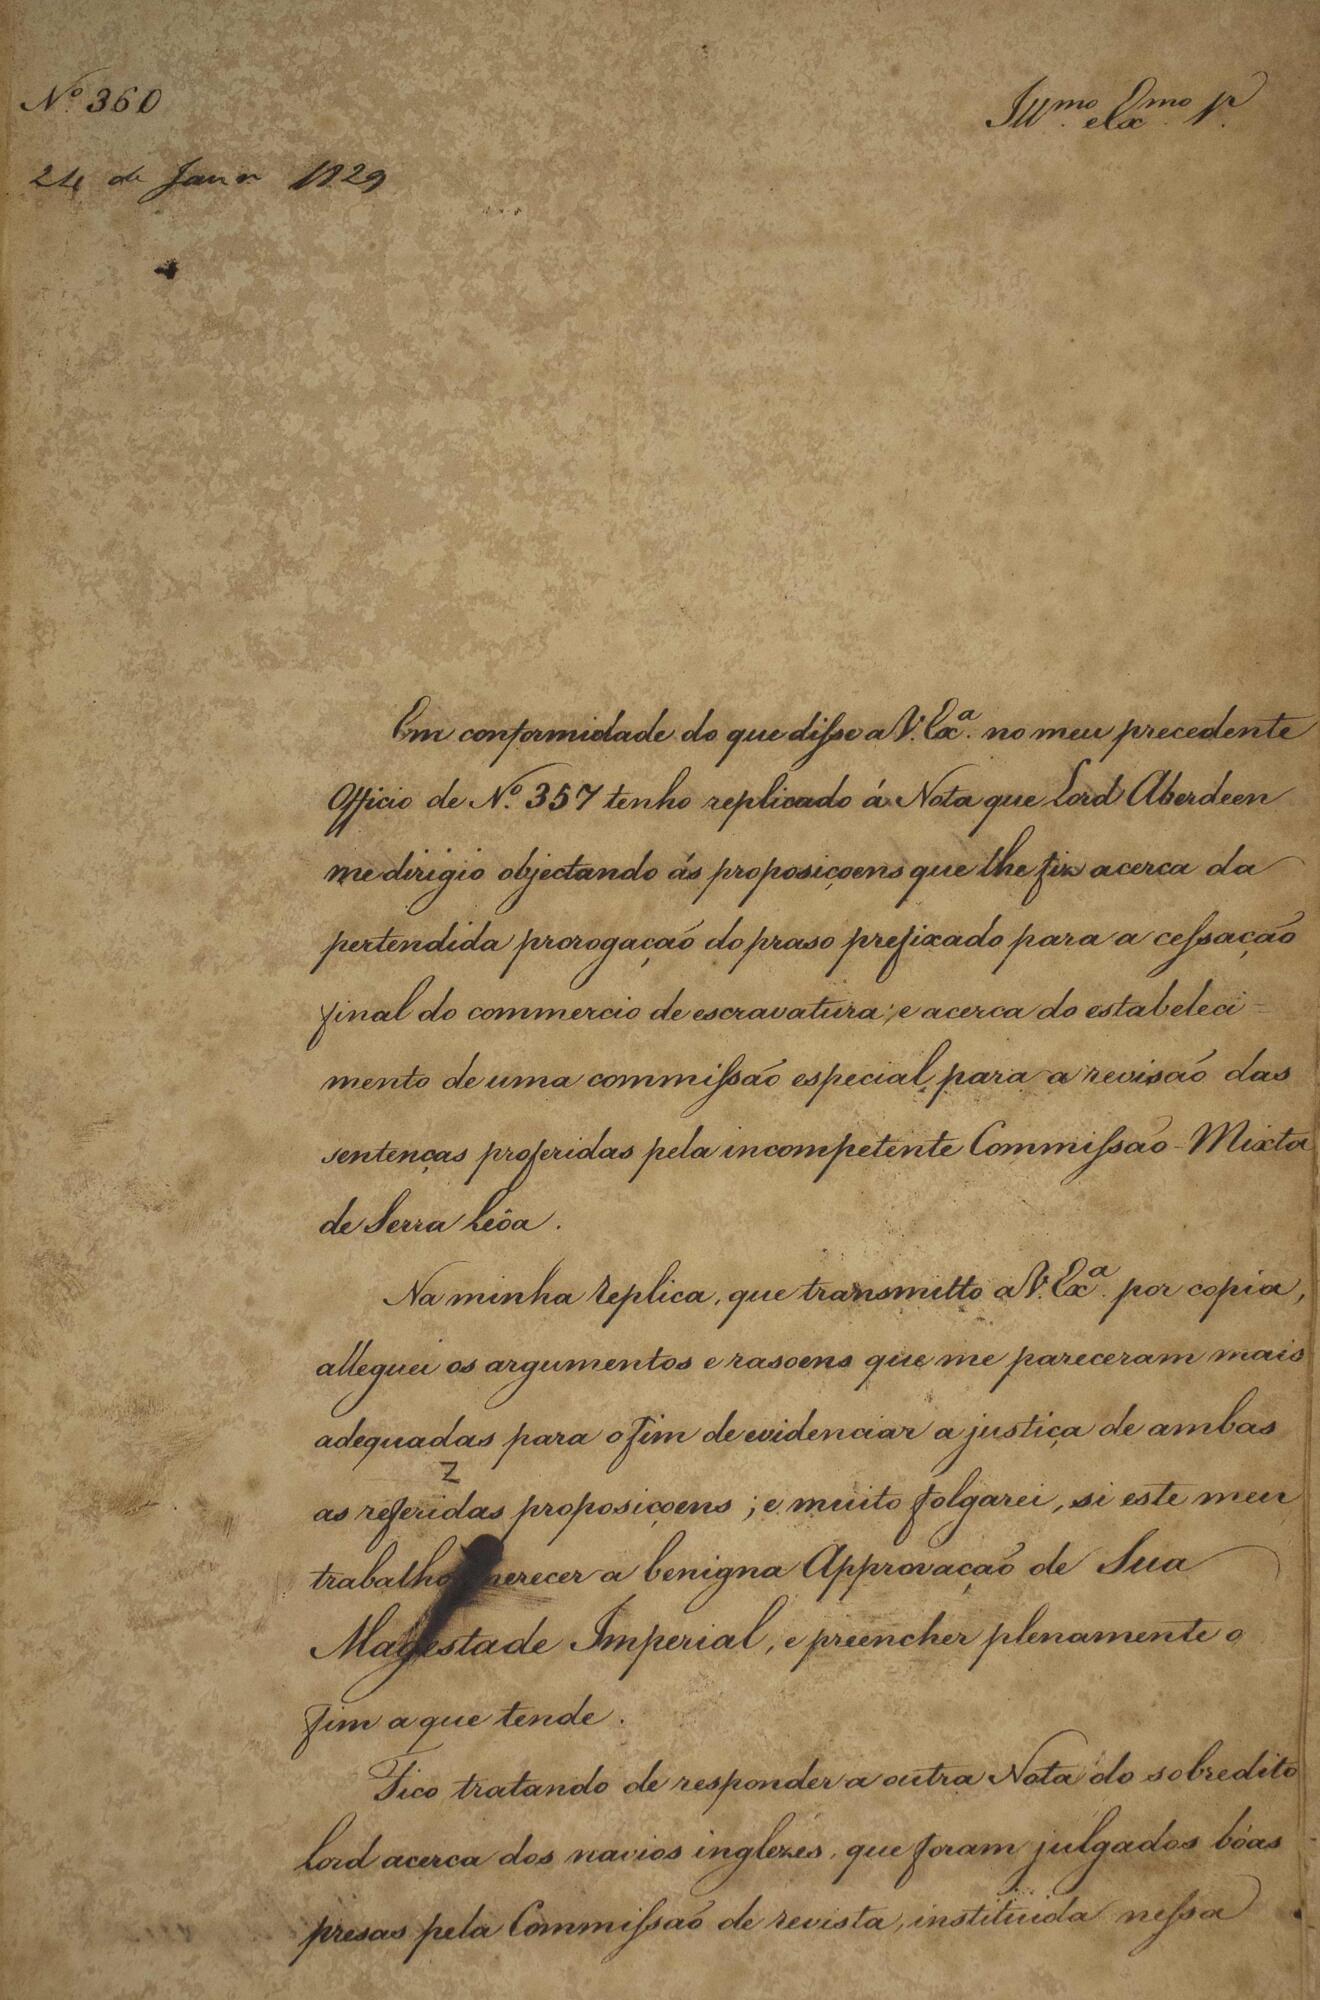 Nº 360
Illmo. e Exmo. Sr.
24 de Janro 1829
Em conformidade do que disse a V. Exa. no meu precedente
Officio de Nº 357 tenho replicado á Nota que Lord Aberdeen
me dirigio objectando ás proposiçoens que lhe fiz acerca da
pertendida prorogação do praso prefixado para a cessação
final do commercio de escravatura; e acerca do estabeleci-
mento de uma commissão especial para a revisão das
sentenças proferidas pela incompetente Commissão-Mixta
de Serra Leôa.
Na minha replica, que transmitto a V. Exa. por copia,
alleguei os argumentos e rasoens que me pareceram mais
adequadas para o fim de evidenciar a justiça de ambas
as referidas proposiçoens; e muito folgarei, si este meu
trabalho merecer a benigna Approvação de Sua
Magestade Imperial, e preencher plenamente o
fim a que tende.
Fico tratando de responder a outra Nota do sobredito
Lord acerca dos navios inglezes, que foram julgados bôas
presas pela Commissão de revista, instituida nessa